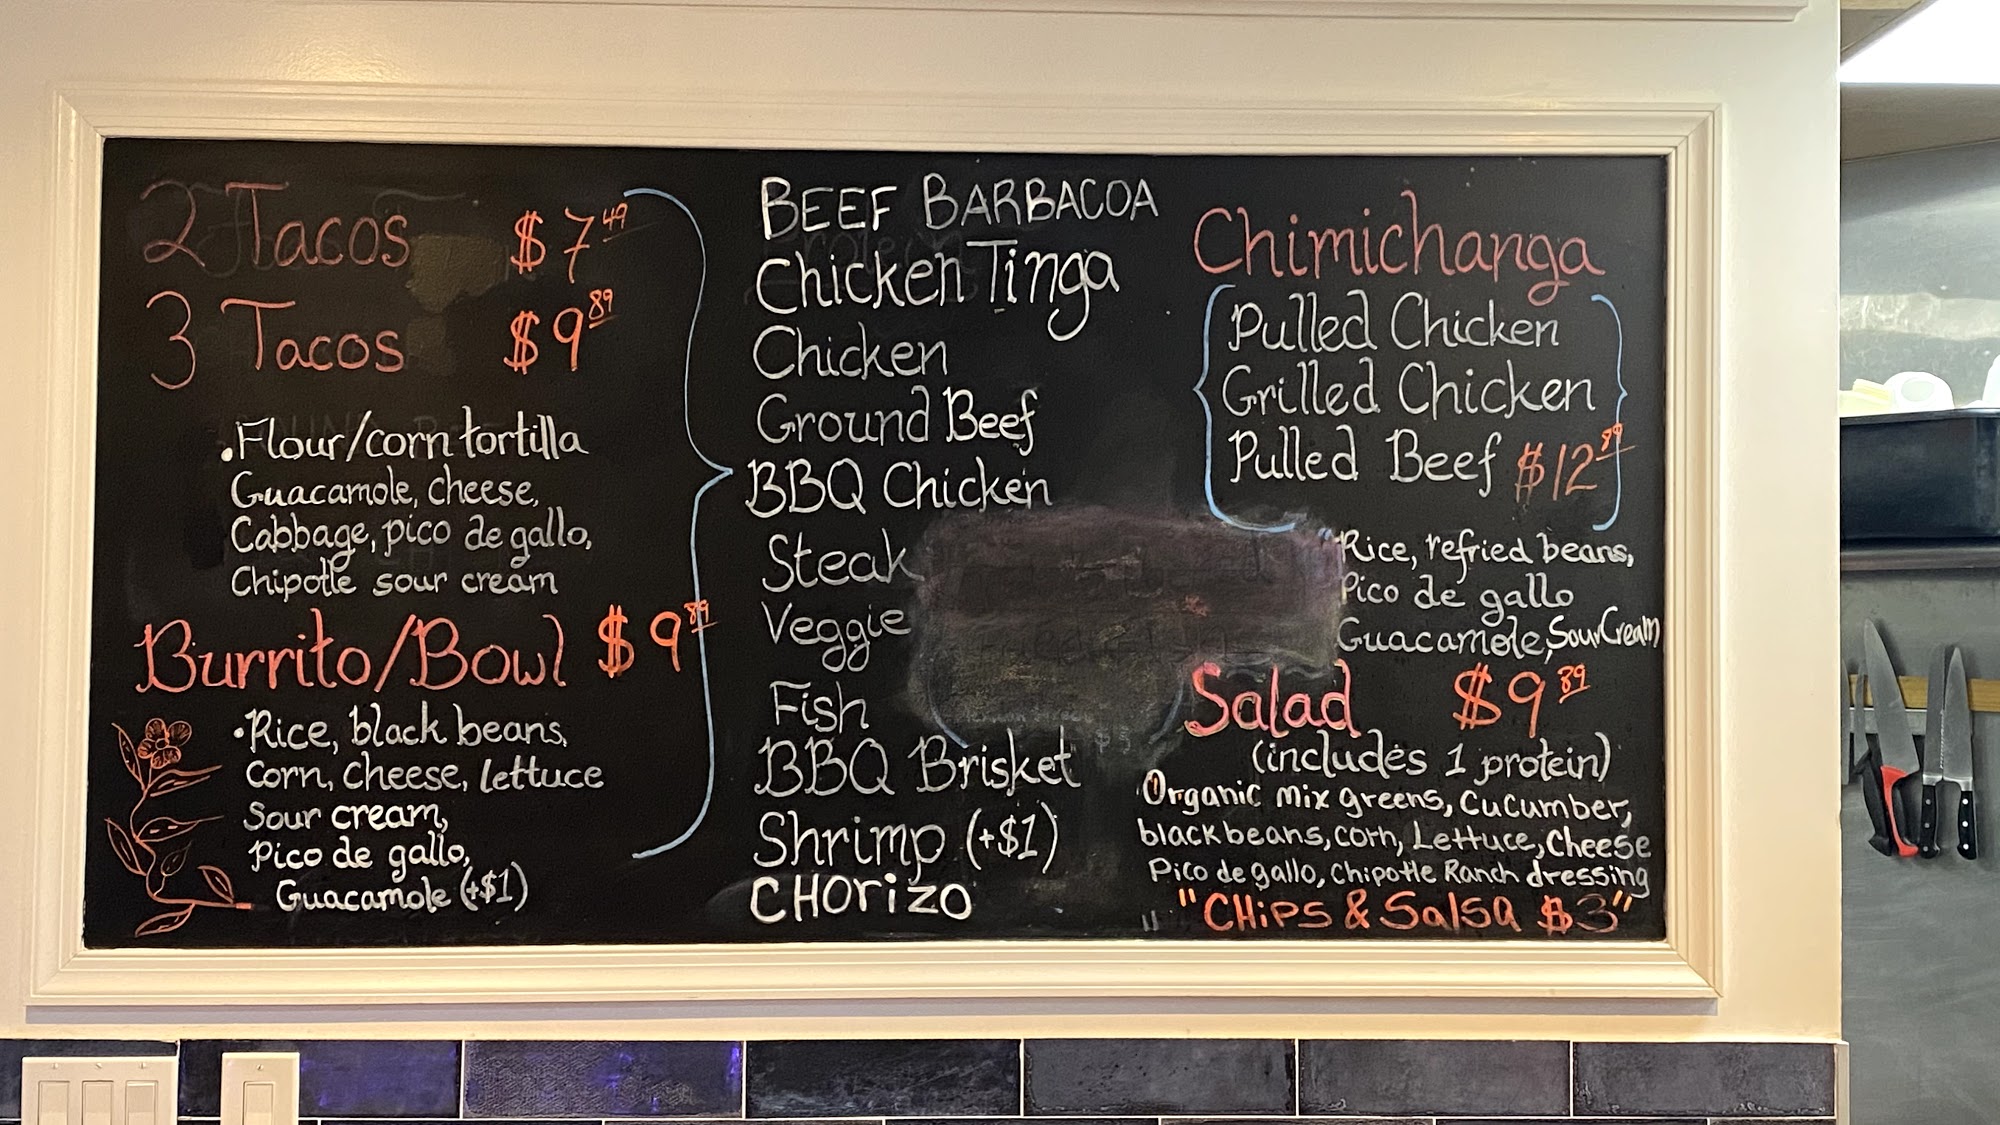 2 Tacos $7.49
3 Tacos $9.89
•Flour/corn tortilla
Guacamole, cheese,
Cabbage, pico de gallo,
Chipotle sour cream
Burrito/Bowl $9.89
•Rice, black beans,
corn, cheese, lettuce
Sour cream,
Pico de gallo,
Guacamole (+$1)
BEEF BARBACOA
Chicken Tinga
Chicken
Ground Beef
BBQ Chicken
Steak
Veggie
Fish
BBQ Brisket
Shrimp (+$1)
CHORIZO
Chimichanga
Pulled Chicken
Grilled Chicken
Pulled Beef $12.89
Rice, refried beans,
Pico de gallo
Guacamole, Sour Cream
Salad $9.89
(includes 1 protein)
Organic mix greens, Cucumber,
black beans, corn, Lettuce, Cheese
Pico de gallo, Chipotle Ranch dressing
"CHIPS & Salsa $3"